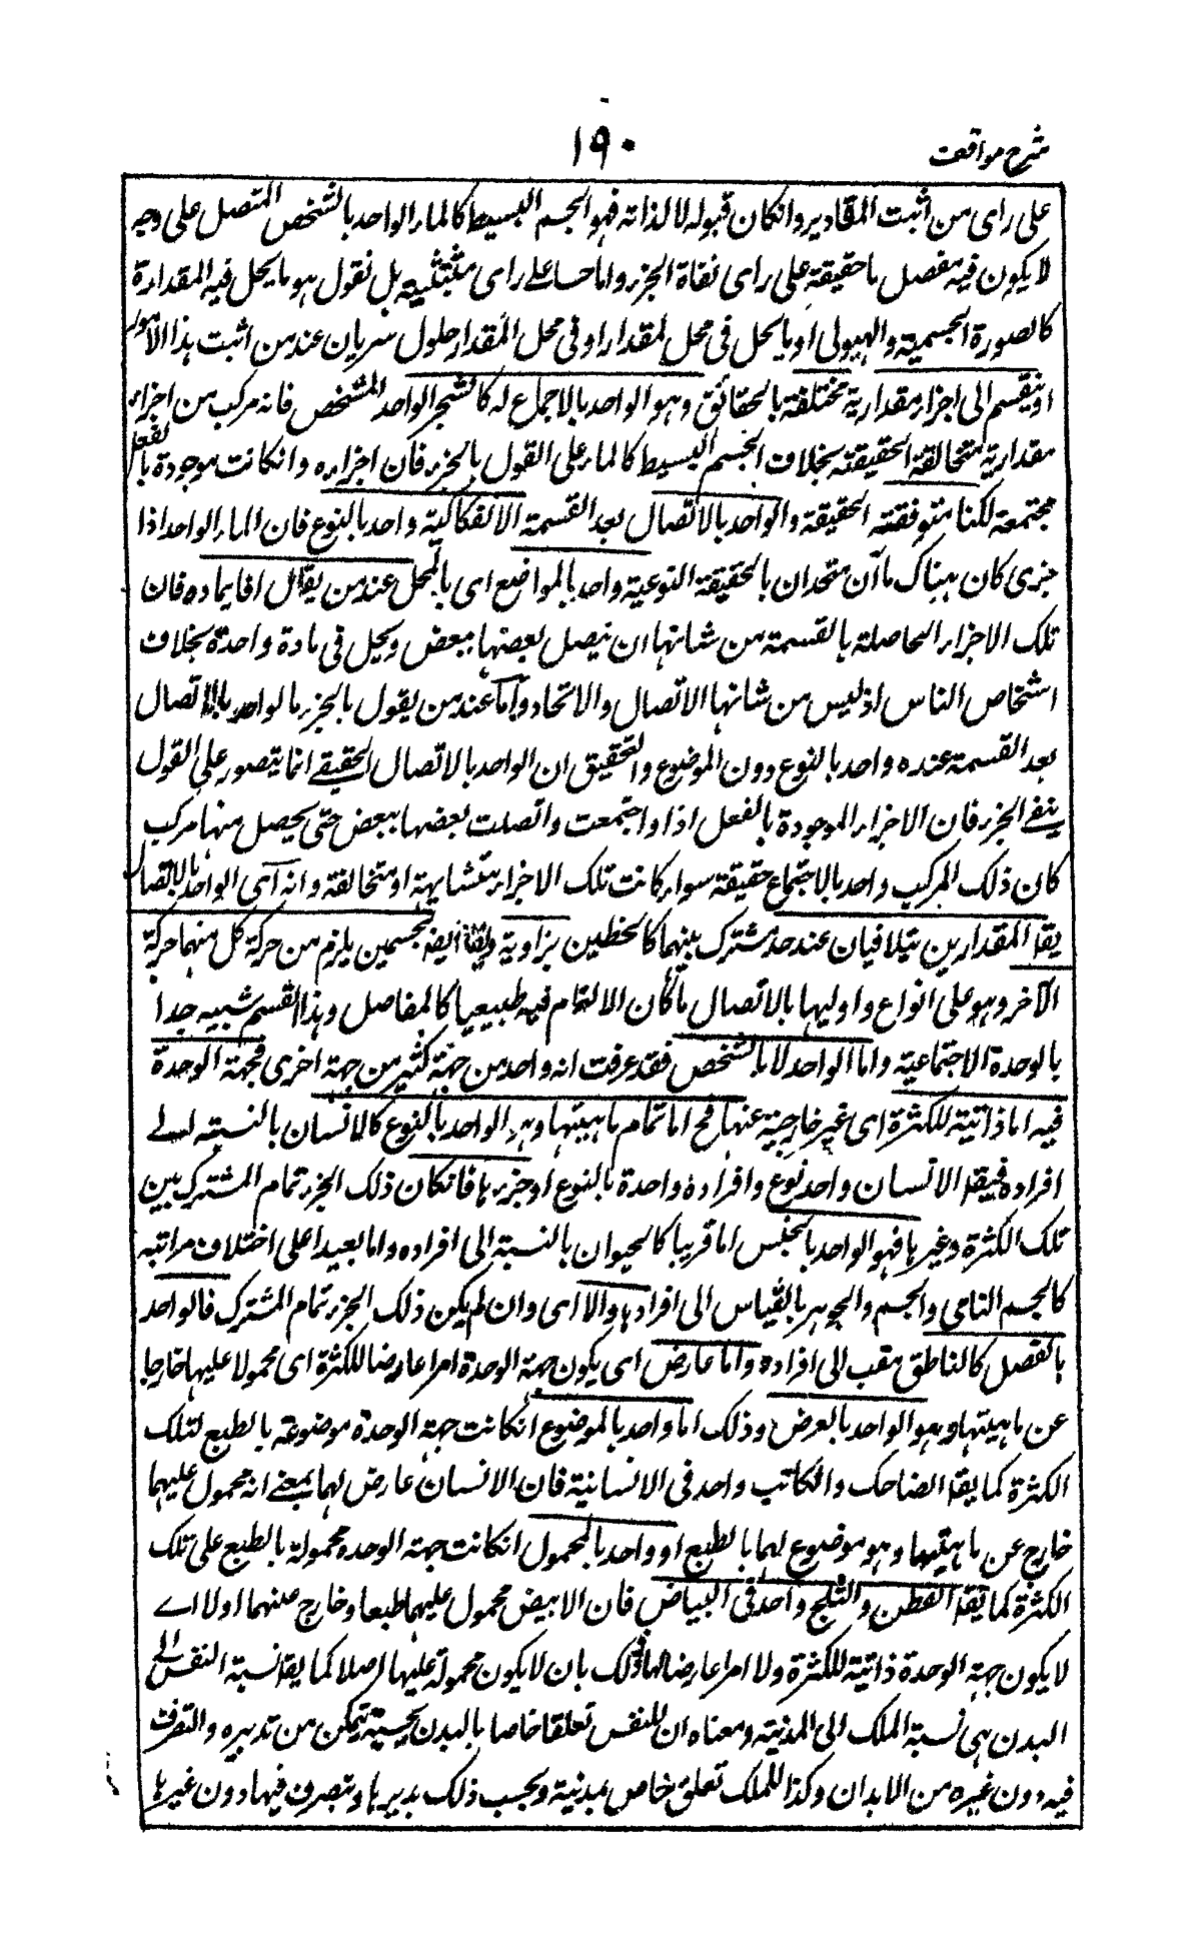 شرح مواقف
١٩٠
على راى من اثبت المقادير وانكان قبوله لا لذاته فهو الجسم البسيط كالماء الواحد بالشخص المتصل على وجه
لا يكون فيه مفصل ما حقيقة على راى نفاة الجزء واما حسا على راى مثبتيه بل نقول هو ما يحل فيه المقدار ة
كالصورة الجسمية والهيولى او ما يحل فى محل المقدار او فى محل المقدار حلول سريان عند من اثبت هذا الامور
او ينقسم الى اجزاء مقدارية مختلفة بالحقائق وهو الواحد بالاجماع له كالشجر الواحد المشخص فانه مركب من اجزاء
مقدارية متخالفة الحقيقة بخلاف الجسم البسيط كالماء على القول بالجزء فان اجزاءه وانكانت موجودة بالفعل
مجتمعة لكنها متوفقة الحقيقة والواحد بالاتصال بعد القسمة الانفكاكية واحد بالنوع فان الماء الواحد اذا
جزى كان هناك ماآن متحدان بالحقيقة النوعية واحد بالمواضع اى بالمحل عند من يقال افايماده فان
تلك الاجزاء الحاصلة بالقسمة من شانها ان يتصل بعضها ببعض ويحل فى مادة واحدة بخلاف
اشخاص الناس اذ ليس من شانها الاتصال والاتحاد واما عند من يقول بالجزء بالواحد بالاتصال
بعد القسمة عنده واحد بالنوع دون الموضوع والتحقيق ان الواحد بالاتصال الحقيقے انما يتصور على القول
بنفے الجزء فان الاجزاء الموجودة بالفعل اذا واجتمعت واتصلت بعضها ببعض حتى يحصل منها مركب
كان ذلك المركب واحد بالاجتماع حقيقة سواء كانت تلك الاجزاء متشابهة او متخالفة وانه اى الواحد بالاتصال
يقا المقدارين يتلاقيان عند حد مشترك بينهما كالخطين بزاوية ويقا ايضا لجسمين يلزم من حركة كل منهما حركة
الآخر وهو على انواع واوليها بالاتصال ما كان الالتحام فيه طبيعيا كالمفاصل وهذا القسم شبيه جدا
بالوحدة الاجتماعية واما الواحد لا بالشخص فقد عرفت انه واحد من جهة كثير من جهة اخرى فجهة الوحدة
فيه اما ذاتية للكثرة اى غير خارجية عنها فح اما تمام ماهيتها وهو الواحد بالنوع كالانسان بالنسبة الے
افراده فيقا الانسان واحد نوع وافراده واحدة بالنوع او جزءها فانكان ذلك الجزء تمام المشترك بين
تلك الكثرة وغيرها فهو الواحد بالجنس اما قريبا كالحيوان بالنسبة الى افراده واما بعيدا على اختلاف مراتبه
كالجسم النامى والجسم والجوهر بالقياس الى افرادها والا اى وان لم يكن ذلك الجزء تمام المشترك فالواحد
بالفصل كالناطق مقب الى افراده واما عارض اى يكون جهة الوحدة امرا عارضا للكثرة اى محمولا عليها خارجا
عن ماهيتها وهو الواحد بالعرض وذلك اما واحد بالموضوع انكانت جهة الوحدة موضوعة بالطبع لتلك
الكثرة كما يقا الضاحك والكاتب واحد فى الانسانية فان الانسان عارض لهما بمعنے انه محمول عليهما
خارج عن ماهيتهما وهو موضوع لهما بالطبع او واحد بالمحمول انكانت جهة الوحدة محمولة بالطبع على تلك
الكثرة كما يقا القطن والثلج واحد فى البياض فان الابيض محمول عليهما طبعا وخارج عنهما اولا اے
لا يكون جهة الوحدة ذاتية للكثرة ولا امرا عارضا لها وذلك بان لا يكون محمولة عليها اصلا كما يقا نسبة النفس الى
البدن هى نسبة الملك الى المدنية ومعناه ان للنفس تعلقا خاصا بالبدن بحسبه يتمكن من تدبيره والتصرف
فيه دون غيره من الابدان وكذا للملك تعلق خاص بمدنية وبحسب ذلك يدبرها ويتصرف فيها دون غيرها